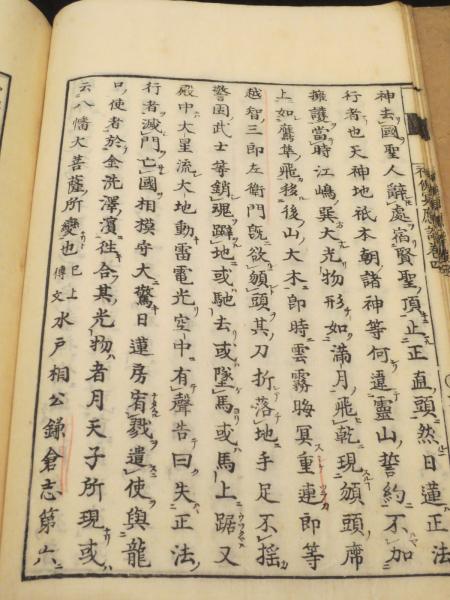 神去國聖人辭處宿賢聖頂止正直頭然日蓮正法
行者也天神地祇本朝諸神等何違靈山誓約不加
擁護當時江嶋巽大光物形如滿月飛乾現頭席
上如鷹隼飛移後山大木即時雲霧晦冥重連即等
越智三郎左衛門既欲頭其刀折落地手足不搖
警固武士等銷魂躃地或馳去或墜馬或馬上踞又
殿中大星流大地動雷電光空中有聲告曰失正法
行者滅門亡國相摸守大驚日蓮房宥戮遣使與龍
口使者於金洗澤濱往合其光物者月天子所現或
云八幡大菩薩所變也已上傳文水戸桐公鎌倉志第六